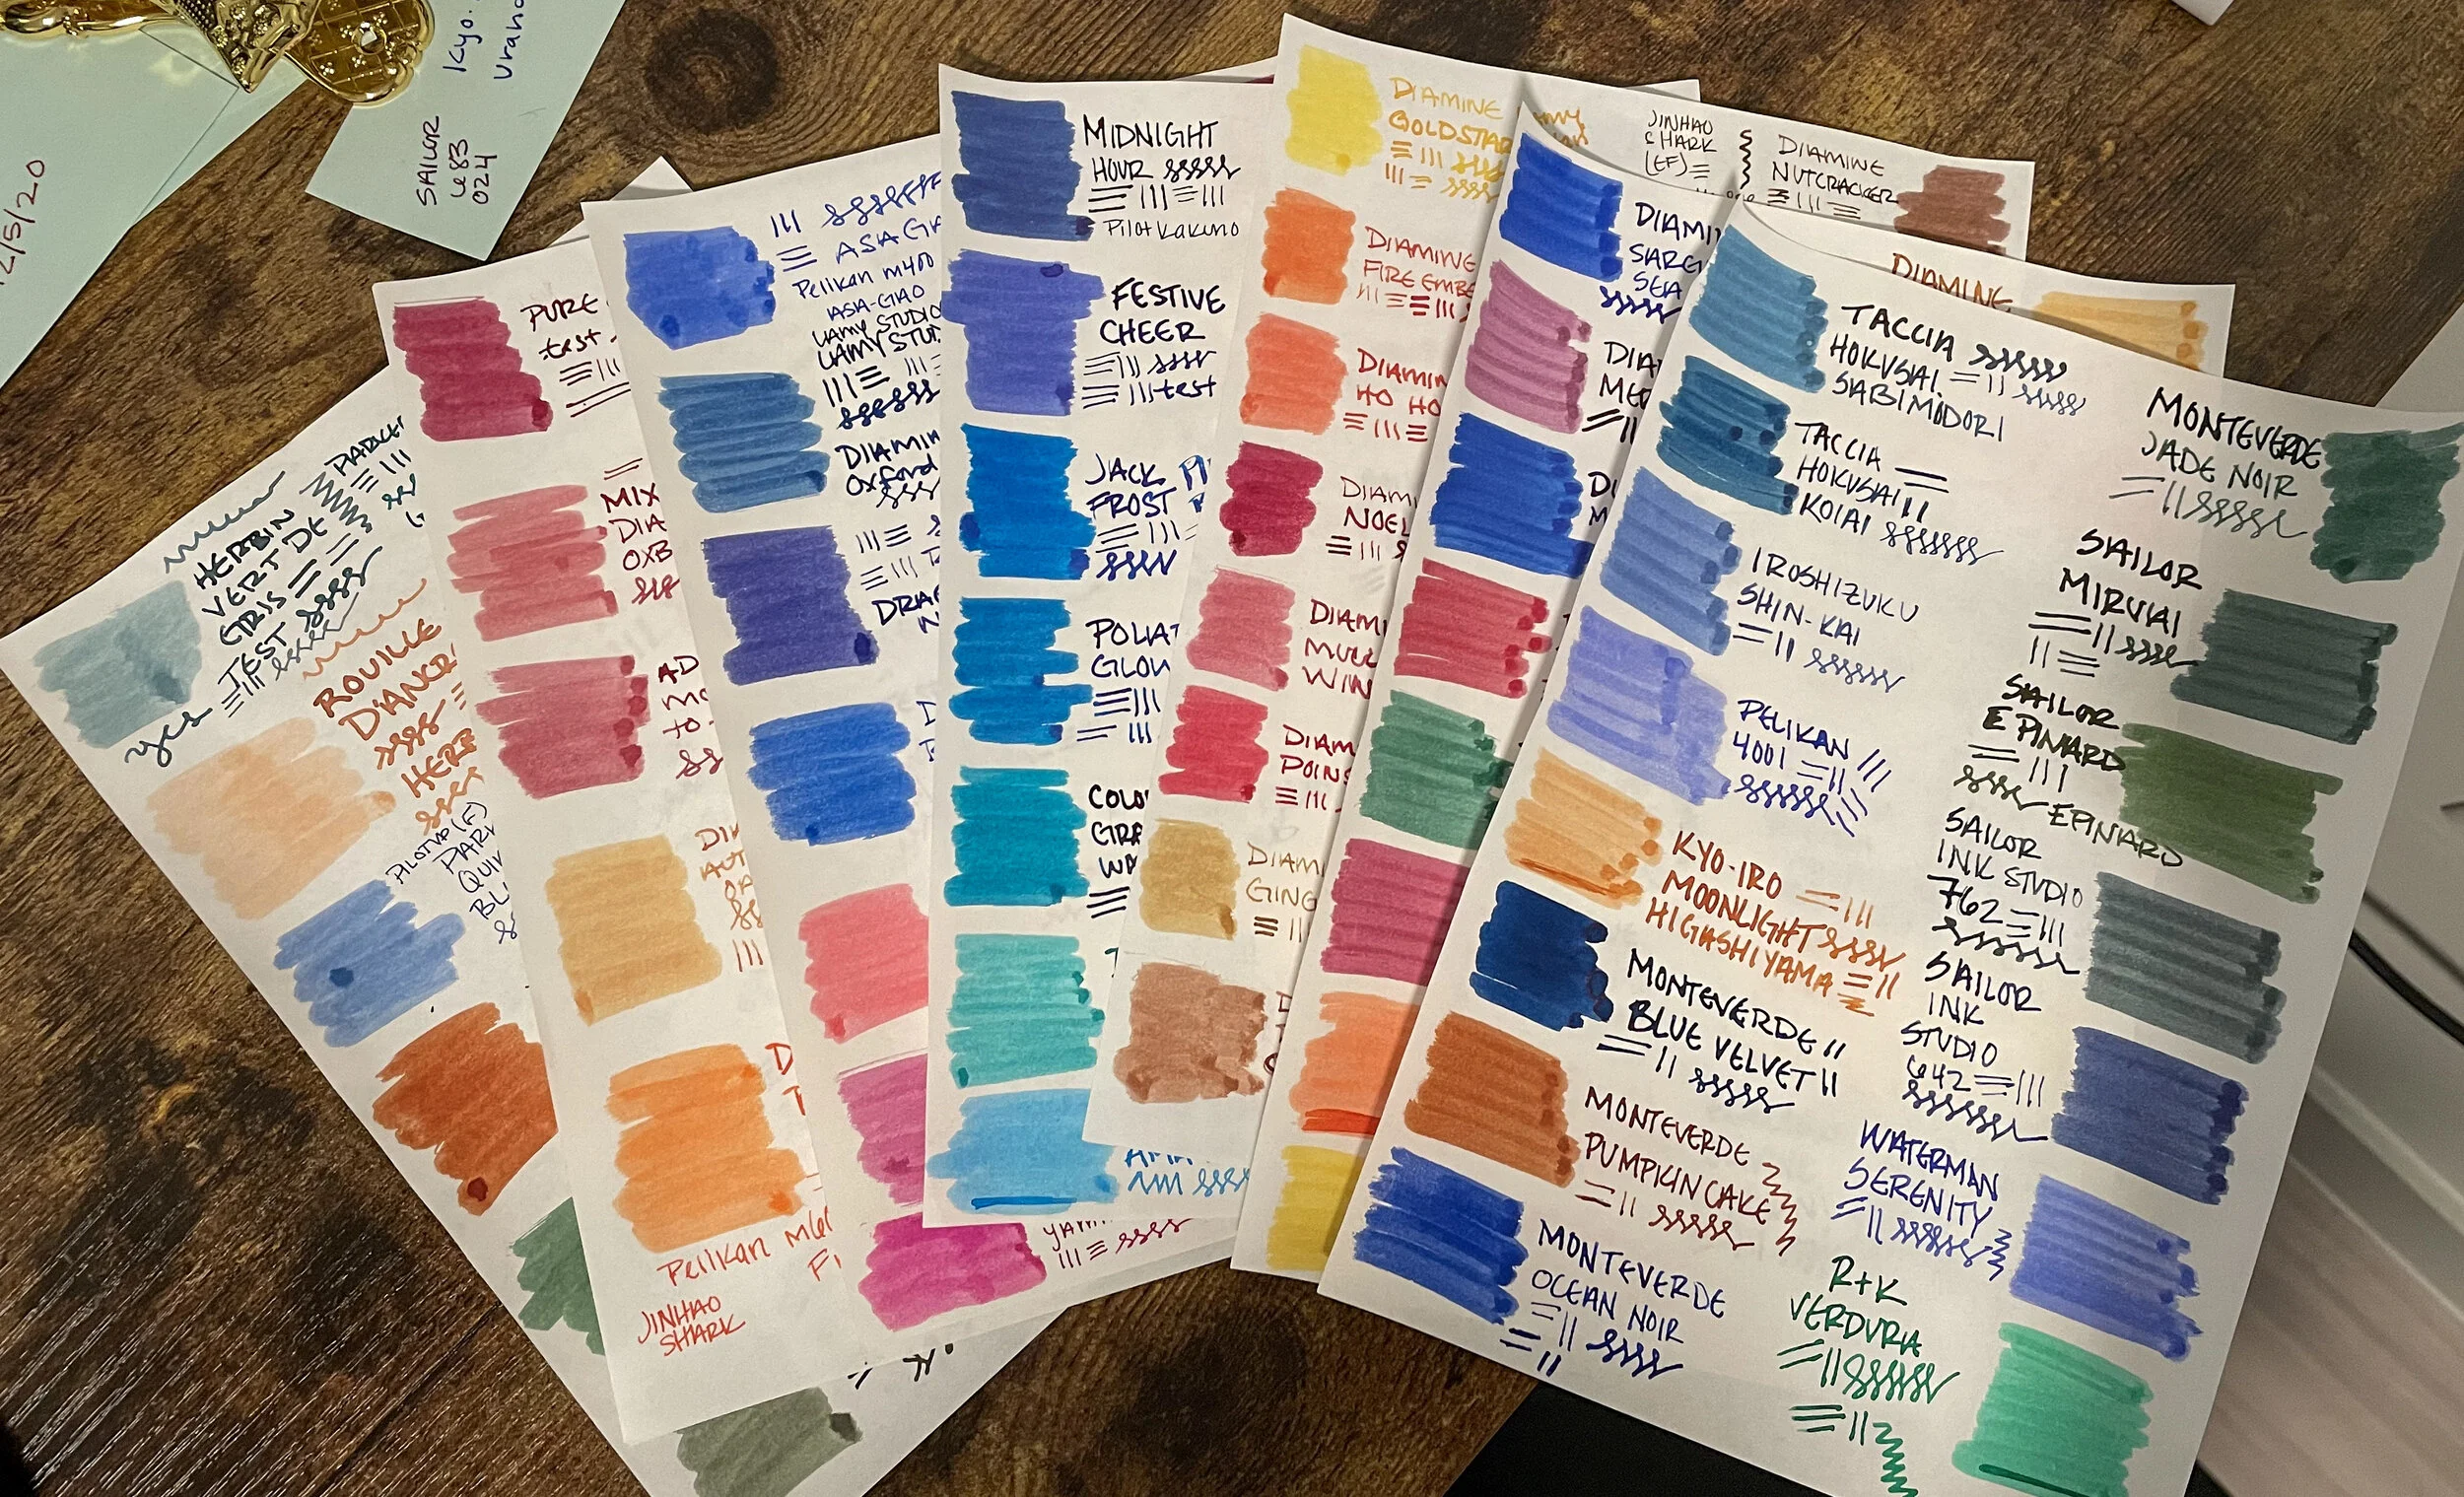 12/5/20
SAILOR
683
024
Kyo.
HERBIN
VERT DE
GRIS
TEST
yes
ROUILLE
D'ANCR
HERB
PILOT VP (F)
PARK
QUIN
BL
PURE
test
MIX
DIA
OXB
AD
MO
to
DIA
AUT
OA
D
Pelikan M
F
JINHAO
SHARK
ASA GA
Pelikan m400
ASA-GAO
LAMY STUDIO
LAMY STUD
DIAMIN
Oxford
DRA
YAM
MIDNIGHT
HOUR
Pilot Kakuno
FESTIVE
CHEER
test
JACK
FROST
POLAR
GLOW
COLO
GRE
WA
DIAMINE
GOLDSTAR
DIAMINE
FIRE EMBE
DIAMIN
HO HO
DIAMI
NOEL
DIAMI
MULL
WIN
DIAM
POINS
DIAMI
GING
JINHAO
SHARK
(EF)
DIAMINE
NUTCRACKER
DIAMINE
DIAMI
SARG
SEA
DIA
ME
TACCIA
HOKUSAI
SABIMIDORI
TACCIA
HOKUSAI
KOIAI
IROSHIZUKU
SHIN-KAI
PELIKAN
4001
KYO-IRO
MOONLIGHT
HIGASHIYAMA
MONTEVERDE
BLUE VELVET
MONTEVERDE
PUMPKIN CAKE
MONTEVERDE
OCEAN NOIR
MONTEVERDE
JADE NOIR
SAILOR
MIRUAI
SAILOR
EPINARD
EPINARD
SAILOR
INK STUDIO
762
SAILOR
INK
STUDIO
642
WATERMAN
SERENITY
R+K
VERDURA